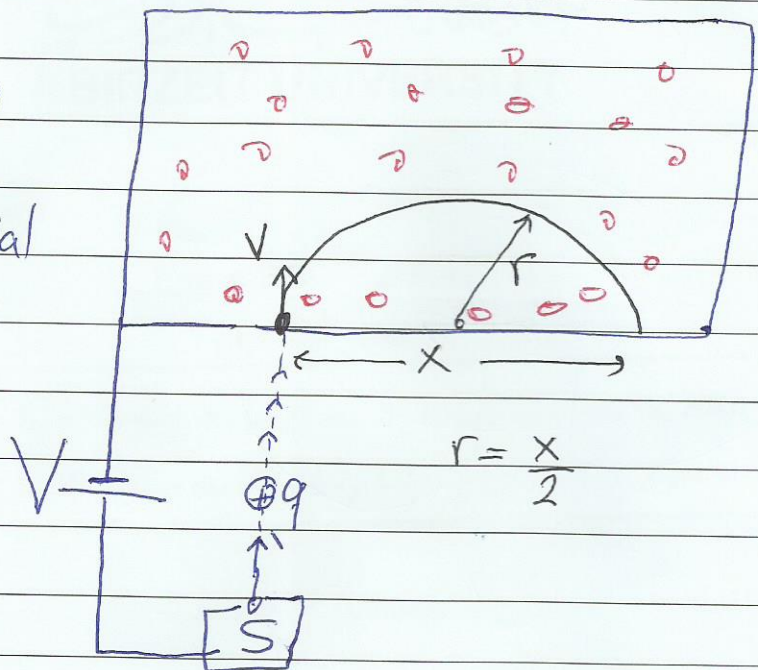 al
V
r
x
r = x/2
V
q
S